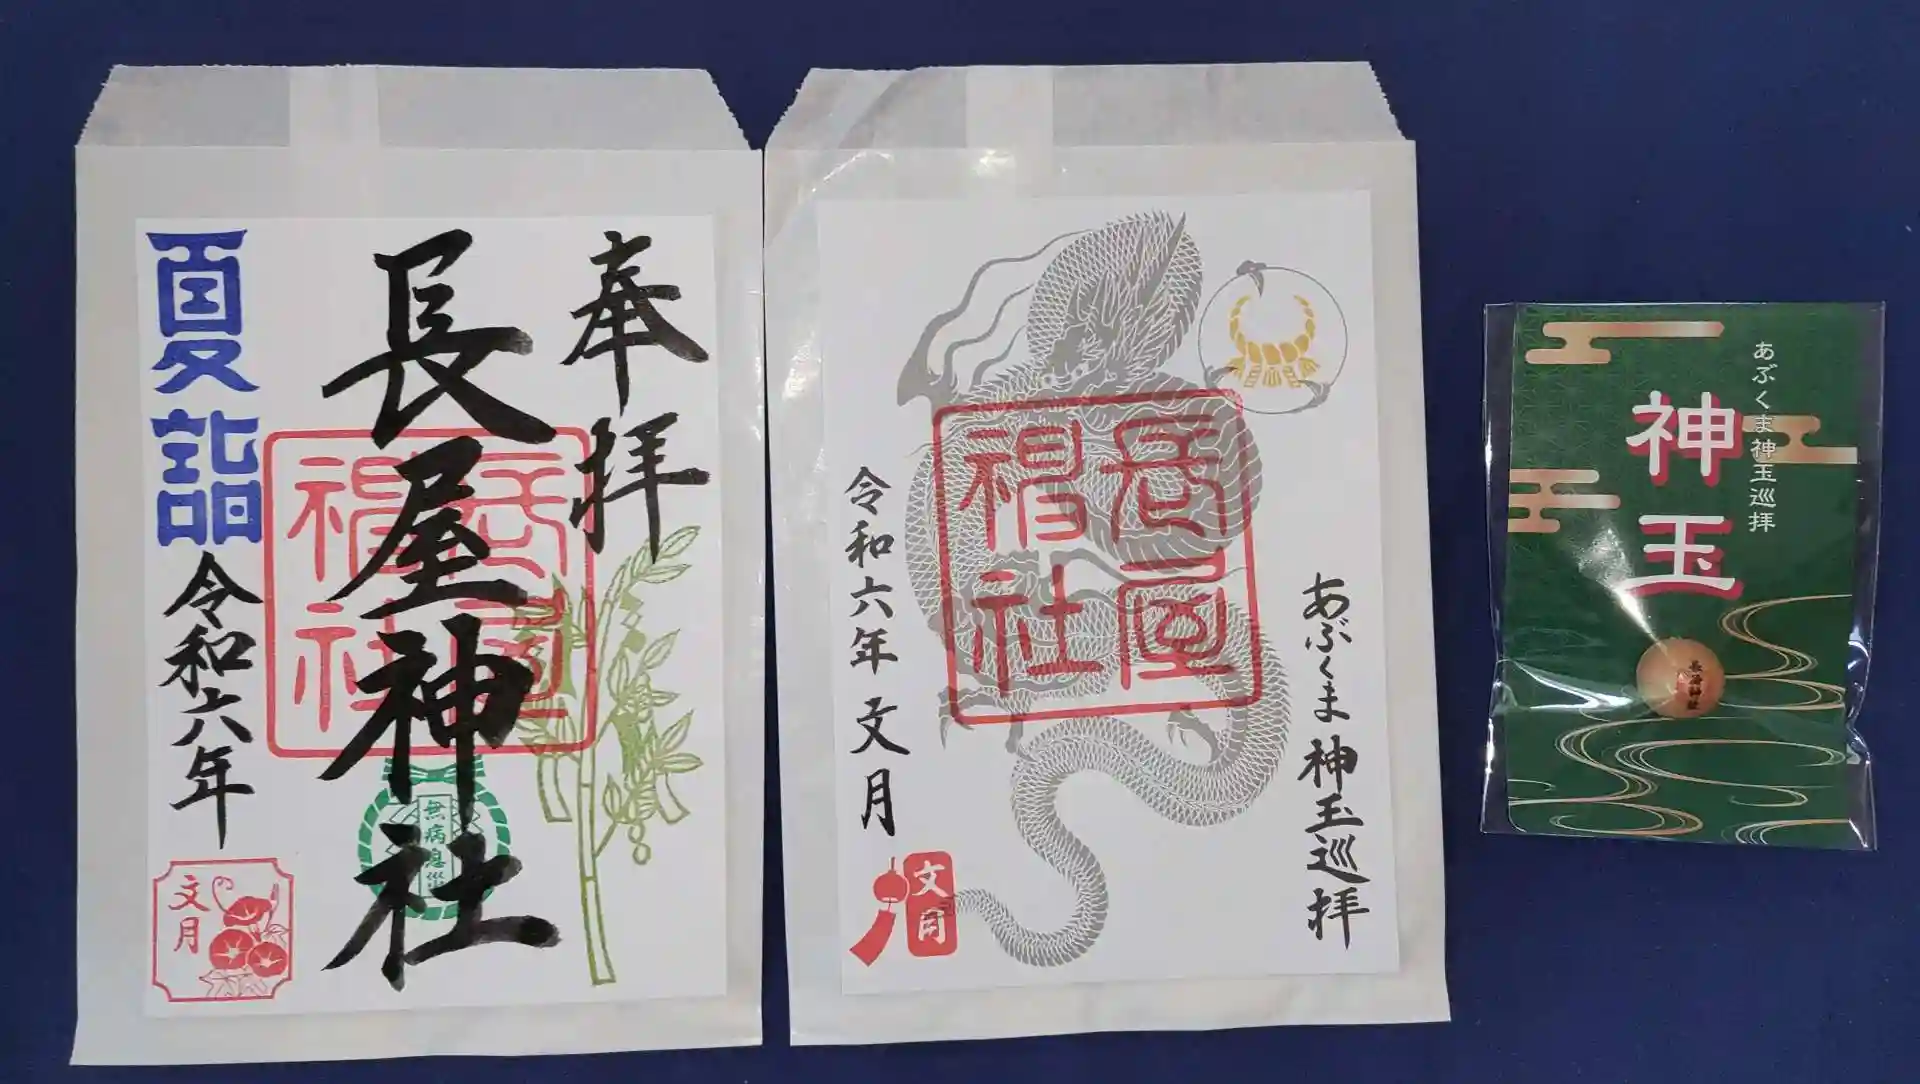 奉拝
長屋神社
長屋神社
無病息災
夏詣
令和六年
文月
あぶくま神玉巡拝
長屋神社
令和六年 文月
文月
あぶくま神玉巡拝
神玉
長屋神社